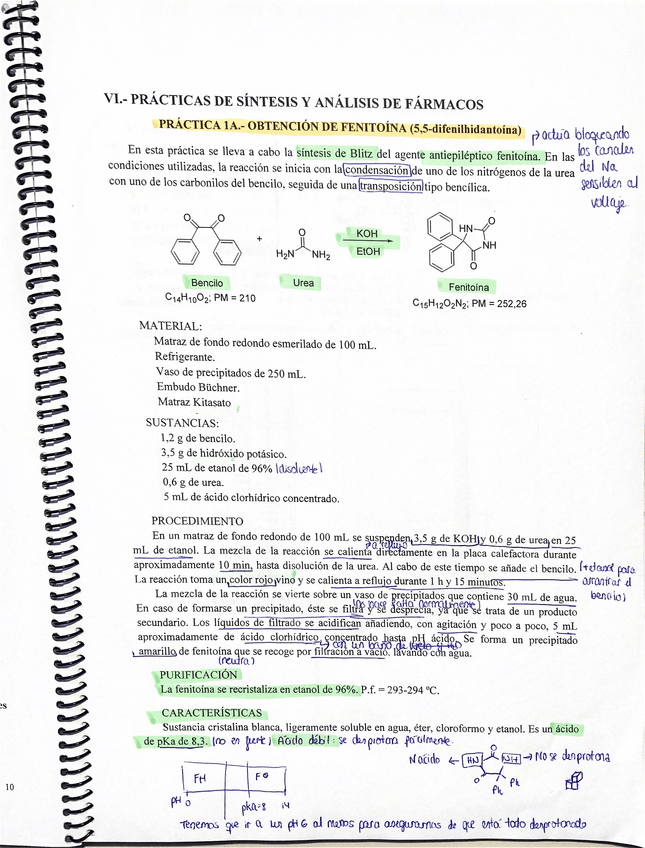 VI.- PRÁCTICAS DE SÍNTESIS Y ANÁLISIS DE FÁRMACOS
PRÁCTICA 1A.- OBTENCIÓN DE FENITOÍNA (5,5-difenilhidantoína)
→ actúa bloqueando
los canales
del Na
sensibles al
voltaje.
En esta práctica se lleva a cabo la síntesis de Blitz del agente antiepiléptico fenitoína. En las
condiciones utilizadas, la reacción se inicia con la condensación de uno de los nitrógenos de la urea
con uno de los carbonilos del bencilo, seguida de una transposición tipo bencílica.
O O
+
O
H₂N NH₂
KOH
EtOH
HN O
NH
O
Bencilo
C₁₄H₁₀O₂; PM = 210
Urea
Fenitoína
C₁₅H₁₂O₂N₂; PM = 252,26
MATERIAL:
Matraz de fondo redondo esmerilado de 100 mL.
Refrigerante.
Vaso de precipitados de 250 mL.
Embudo Büchner.
Matraz Kitasato
SUSTANCIAS:
1,2 g de bencilo.
3,5 g de hidróxido potásico.
25 mL de etanol de 96% (disolvente)
0,6 g de urea.
5 mL de ácido clorhídrico concentrado.
PROCEDIMIENTO
En un matraz de fondo redondo de 100 mL se suspenden 3,5 g de KOH y 0,6 g de urea en 25
a reflujo
mL de etanol. La mezcla de la reacción se calienta directamente en la placa calefactora durante
aproximadamente 10 min, hasta disolución de la urea. Al cabo de este tiempo se añade el bencilo.
(+etanol para
arrastrar el
bencilo)
La reacción toma un color rojo vino y se calienta a reflujo durante 1 h y 15 minutos.
La mezcla de la reacción se vierte sobre un vaso de precipitados que contiene 30 mL de agua.
(no hace falta normalmente)
En caso de formarse un precipitado, éste se filtra y se desprecia, ya que se trata de un producto
secundario. Los líquidos de filtrado se acidifican añadiendo, con agitación y poco a poco, 5 mL
aproximadamente de ácido clorhídrico concentrado hasta pH ácido. Se forma un precipitado
→ con un baño de
amarillo de fenitoína que se recoge por filtración a vacío, lavando con agua.
(neutra)
PURIFICACIÓN
La fenitoína se recristaliza en etanol de 96%. P.f. = 293-294 ºC.
CARACTERÍSTICAS
Sustancia cristalina blanca, ligeramente soluble en agua, éter, cloroformo y etanol. Es un ácido
de pKa de 8,3. (no en fuerte) Ácido débil: se desprotona fácilmente.
N ácido ← HN NH → No se desprotona
O
O Ph
Ph
FH F⊖
pH 0 pka=8 14
Tenemos que ir a un pH 6 al menos para asegurarnos de que está todo desprotonado
es
10